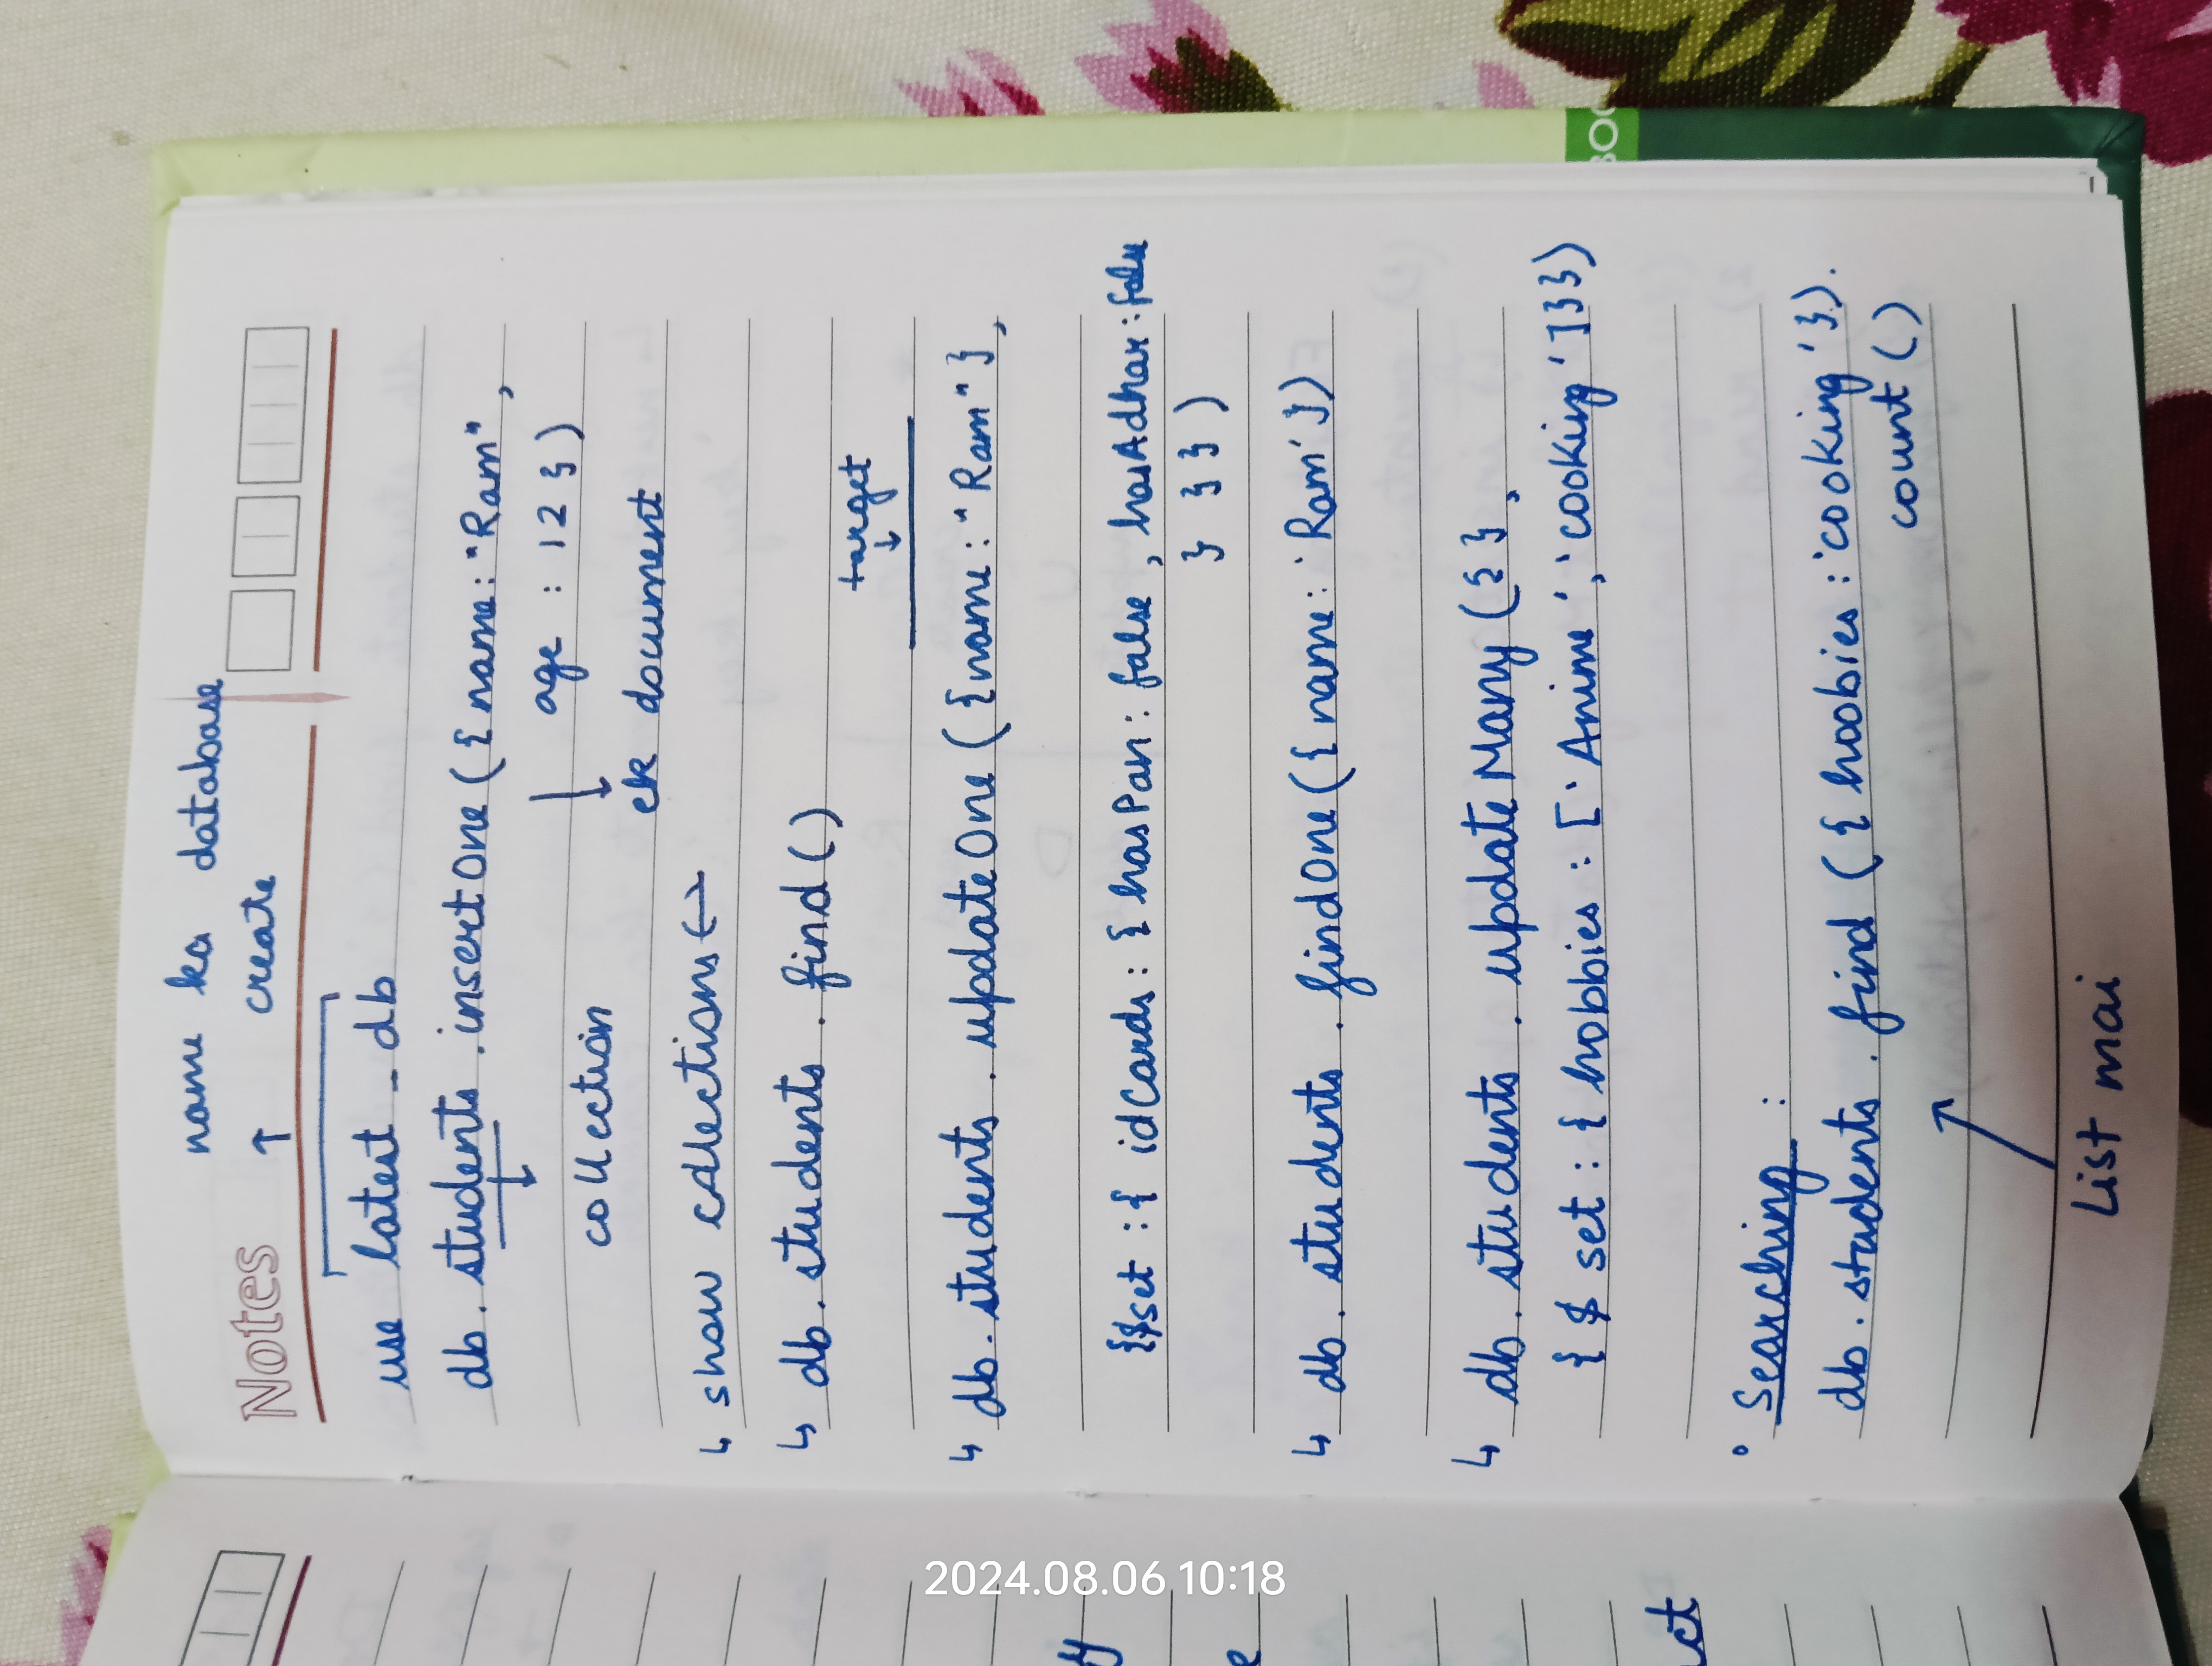 name ka database
↑ create
Notes
use latest_db
db.students.insertOne({name:"Ram",
age : 12})
↓
collection
↓
ek document
↳ show collections()
↳ db.students.find()
target
↓
↳ db.students.updateOne({name:"Ram"},
{$set:{idCards:{hasPan:false, hasAdhar:false
}}})
↳ db.students.findOne({name:'Ram'})
↳ db.students.updateMany({},
{$set:{hobbies:['Anime','cooking']}})
° Searching :
db.students.find({hobbies:'cooking'}).
count()
List mai
BOO
2024.08.06 10:18